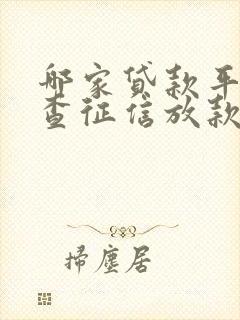 哪家貸款平
查征信放款
掃塵居